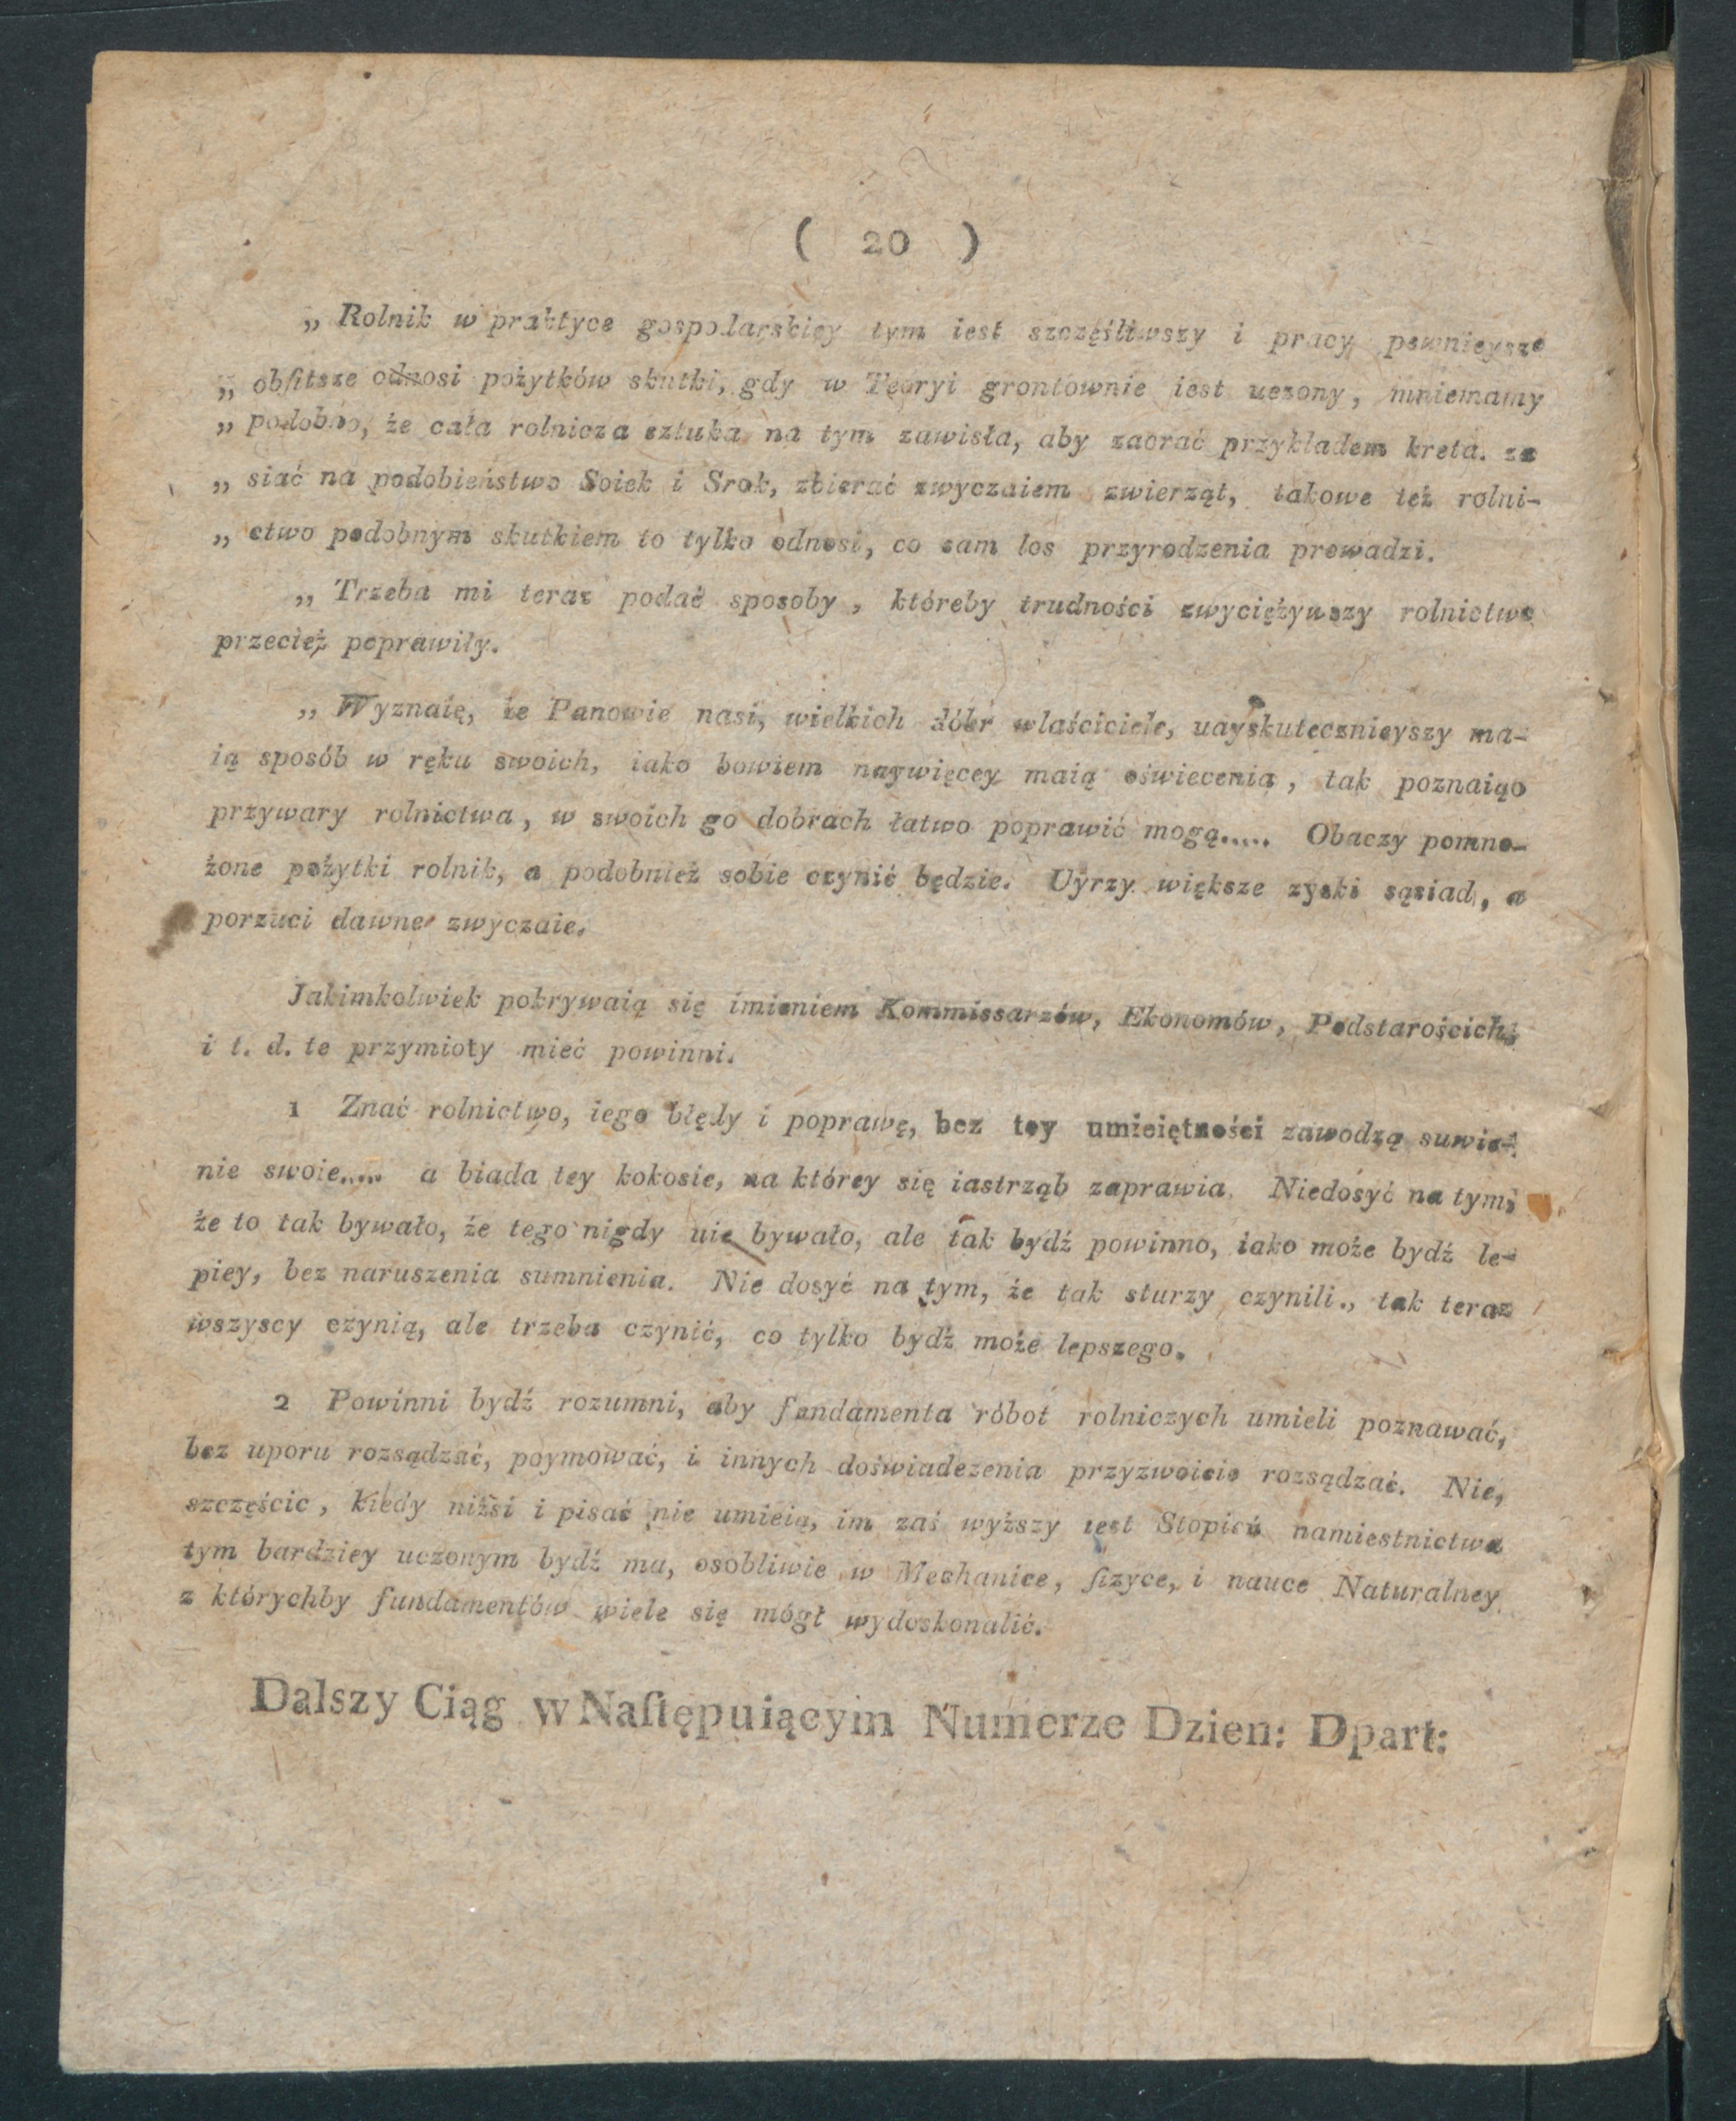 ( 20 )
„ Rolnik w praktyce gospodarskiey tym iest szczęśliwszy i pracy pewnieysze
„ obfitsze odnosi pożytków skutki, gdy w Teoryi grontownie iest uczony, mniemamy
„ podobno, że cała rolnicza sztuka na tym zawisła, aby zaorać przykladem kreta. za
„ siać na podobieństwo Soiek i Srok, zbierać zwyczaiem zwierząt, takowe też rolni-
„ ctwo podobnym skutkiem to tylko odnosi, co sam los przyrodzenia prowadzi.
„ Trzeba mi teraz podać sposoby, któreby trudności zwyciężywszy rolnictwo
przecież poprawiły.
„ Wyznaię, że Panowie nasi, wielkich dóbr właściciele, uayskutecznieyszy ma-
ią sposób w ręku swoich, iako bowiem naywięcey maią oświecenia, tak poznaiąo
przywary rolnictwa, w swoich go dobrach łatwo poprawić mogą..... Obaczy pomno-
żone pożytki rolnik, a podobnież sobie czynić będzie. Uyrzy większe zyski sąsiad, a
porzuci dawne zwyczaie.
Jakimkolwiek pokrywaią się imieniem Kommissarzów, Ekonomów, Podstarościch,
i t. d. te przymioty mieć powinni.
1 Znać rolnictwo, iego błędy i poprawę, bez tey umieiętności zawodzą sumie-
nie swoie..... a biada tey kokosie, na którey się iastrząb zaprawia. Niedosyć na tym,
że to tak bywało, że tego nigdy uie bywało, ale tak bydź powinno, iako może bydź le-
piey, bez naruszenia sumnienia. Nie dosyć na tym, że tak sturzy czynili., tak teraz
wszyscy czynią, ale trzeba czynić, co tylko bydź może lepszego.
2 Powinni bydź rozumni, aby fundamenta róbot rolniczych umieli poznawać,
bez uporu rozsądzać, poymować, i innych doświadczenia przyzwoicie rozsądzać. Nie,
szczęście, kiedy niżsi i pisać nie umieią, im zaś wyższy iest Stopień namiestnictwa
tym bardziey uczonym bydź ma, osobliwie w Mechanice, fizyce, i nauce Naturalney
z którychby fundamentów wiele się mógł wydoskonalić.
Dalszy Ciąg w Naſtępuiącym Numerze Dzien: Dpart: